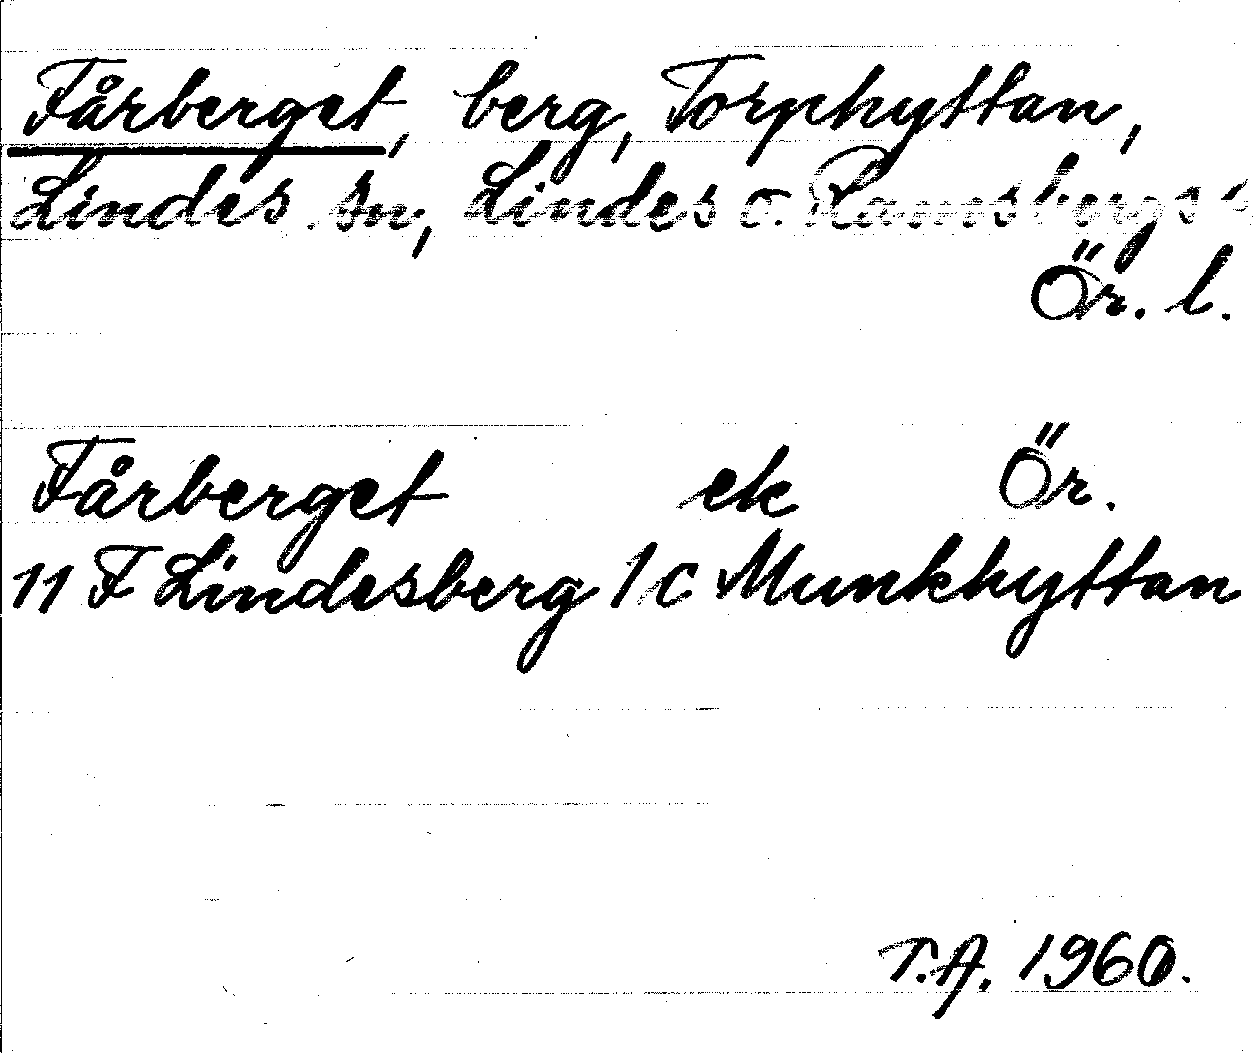 Fårberget, berg, Torphyttan,
Lindes sn, Lindes o. Ramsbergs
Ör. l.
Fårberget ek Ör.
11 F Lindesberg 1 c Munkhyttan
T.A. 1960.